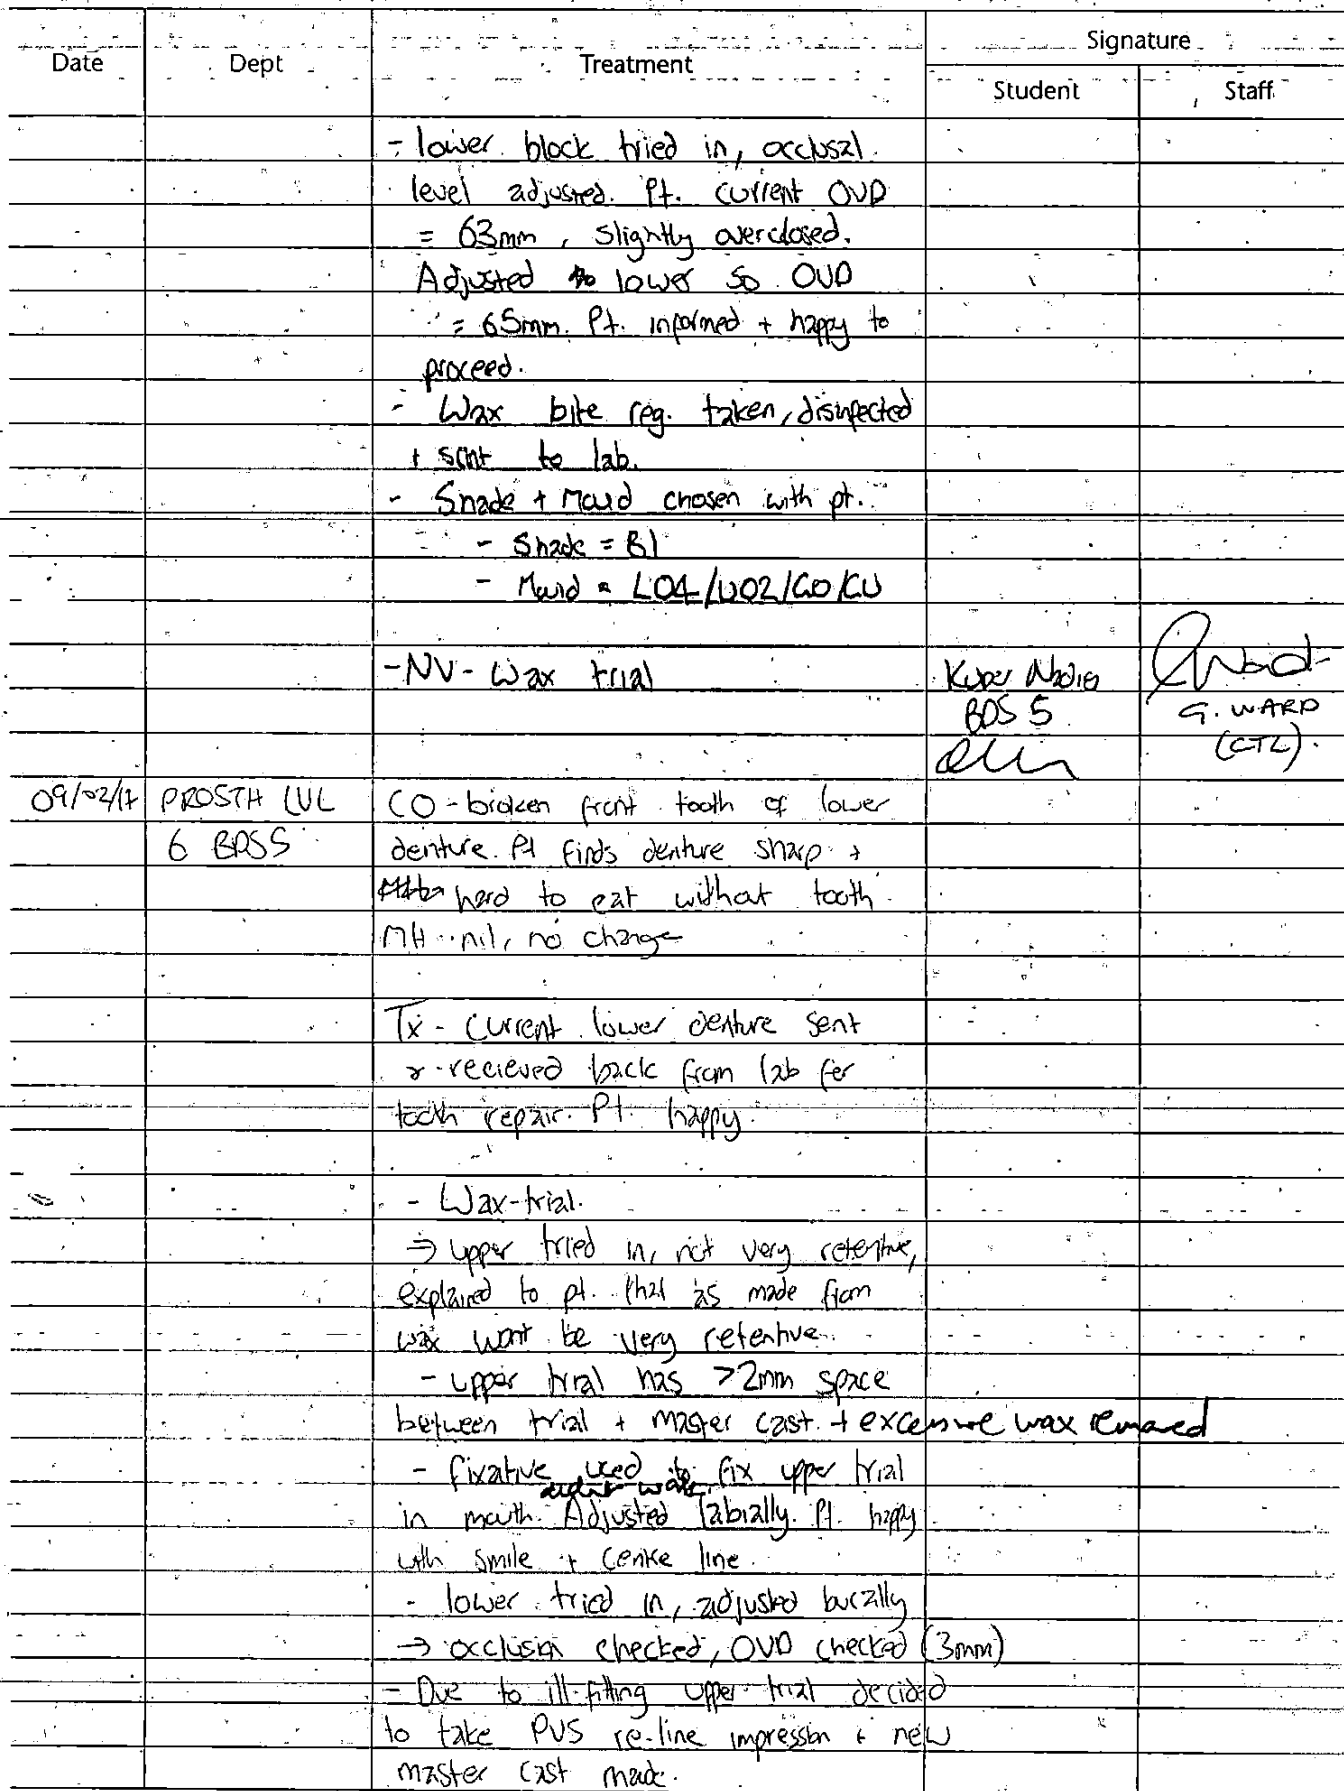 Date Dept Treatment Signature
Student Staff
- lower block tried in, occlusal
level adjusted. Pt. current OVD
= 63mm, slightly overclosed.
Adjusted lower so OVD
= 65mm. Pt. informed + happy to
proceed.
- Wax bite reg. taken, disinfected
+ sent to lab.
- Shade + Mould chosen with pt.
- Shade = B1
- Mould = L04/U02/G0/
- NV - Wax trial
BDS 5
G. WARD
09/02/17 PROSTH LVL CO - broken front tooth of lower
6 BDS5 denture. Pt finds denture sharp +
hard to eat without tooth
MH - nil, no change
Tx - Current lower denture sent
+ recieved back from lab for
tooth repair. Pt. happy.
- Wax-trial.
⇒ upper tried in, not very retentive,
explained to pt. that as made from
wax wont be very retentive.
- upper trial has >2mm space
between trial + master cast. + excessive wax removed
- fixative used to fix upper trial
in mouth. Adjusted labially. Pt. happy
with smile + centre line.
- lower tried in, adjusted bucally
→ occlusion checked, OVD checked (3mm)
- Due to ill-fitting upper trial decided
to take PVS re-line impression + new
master cast made.